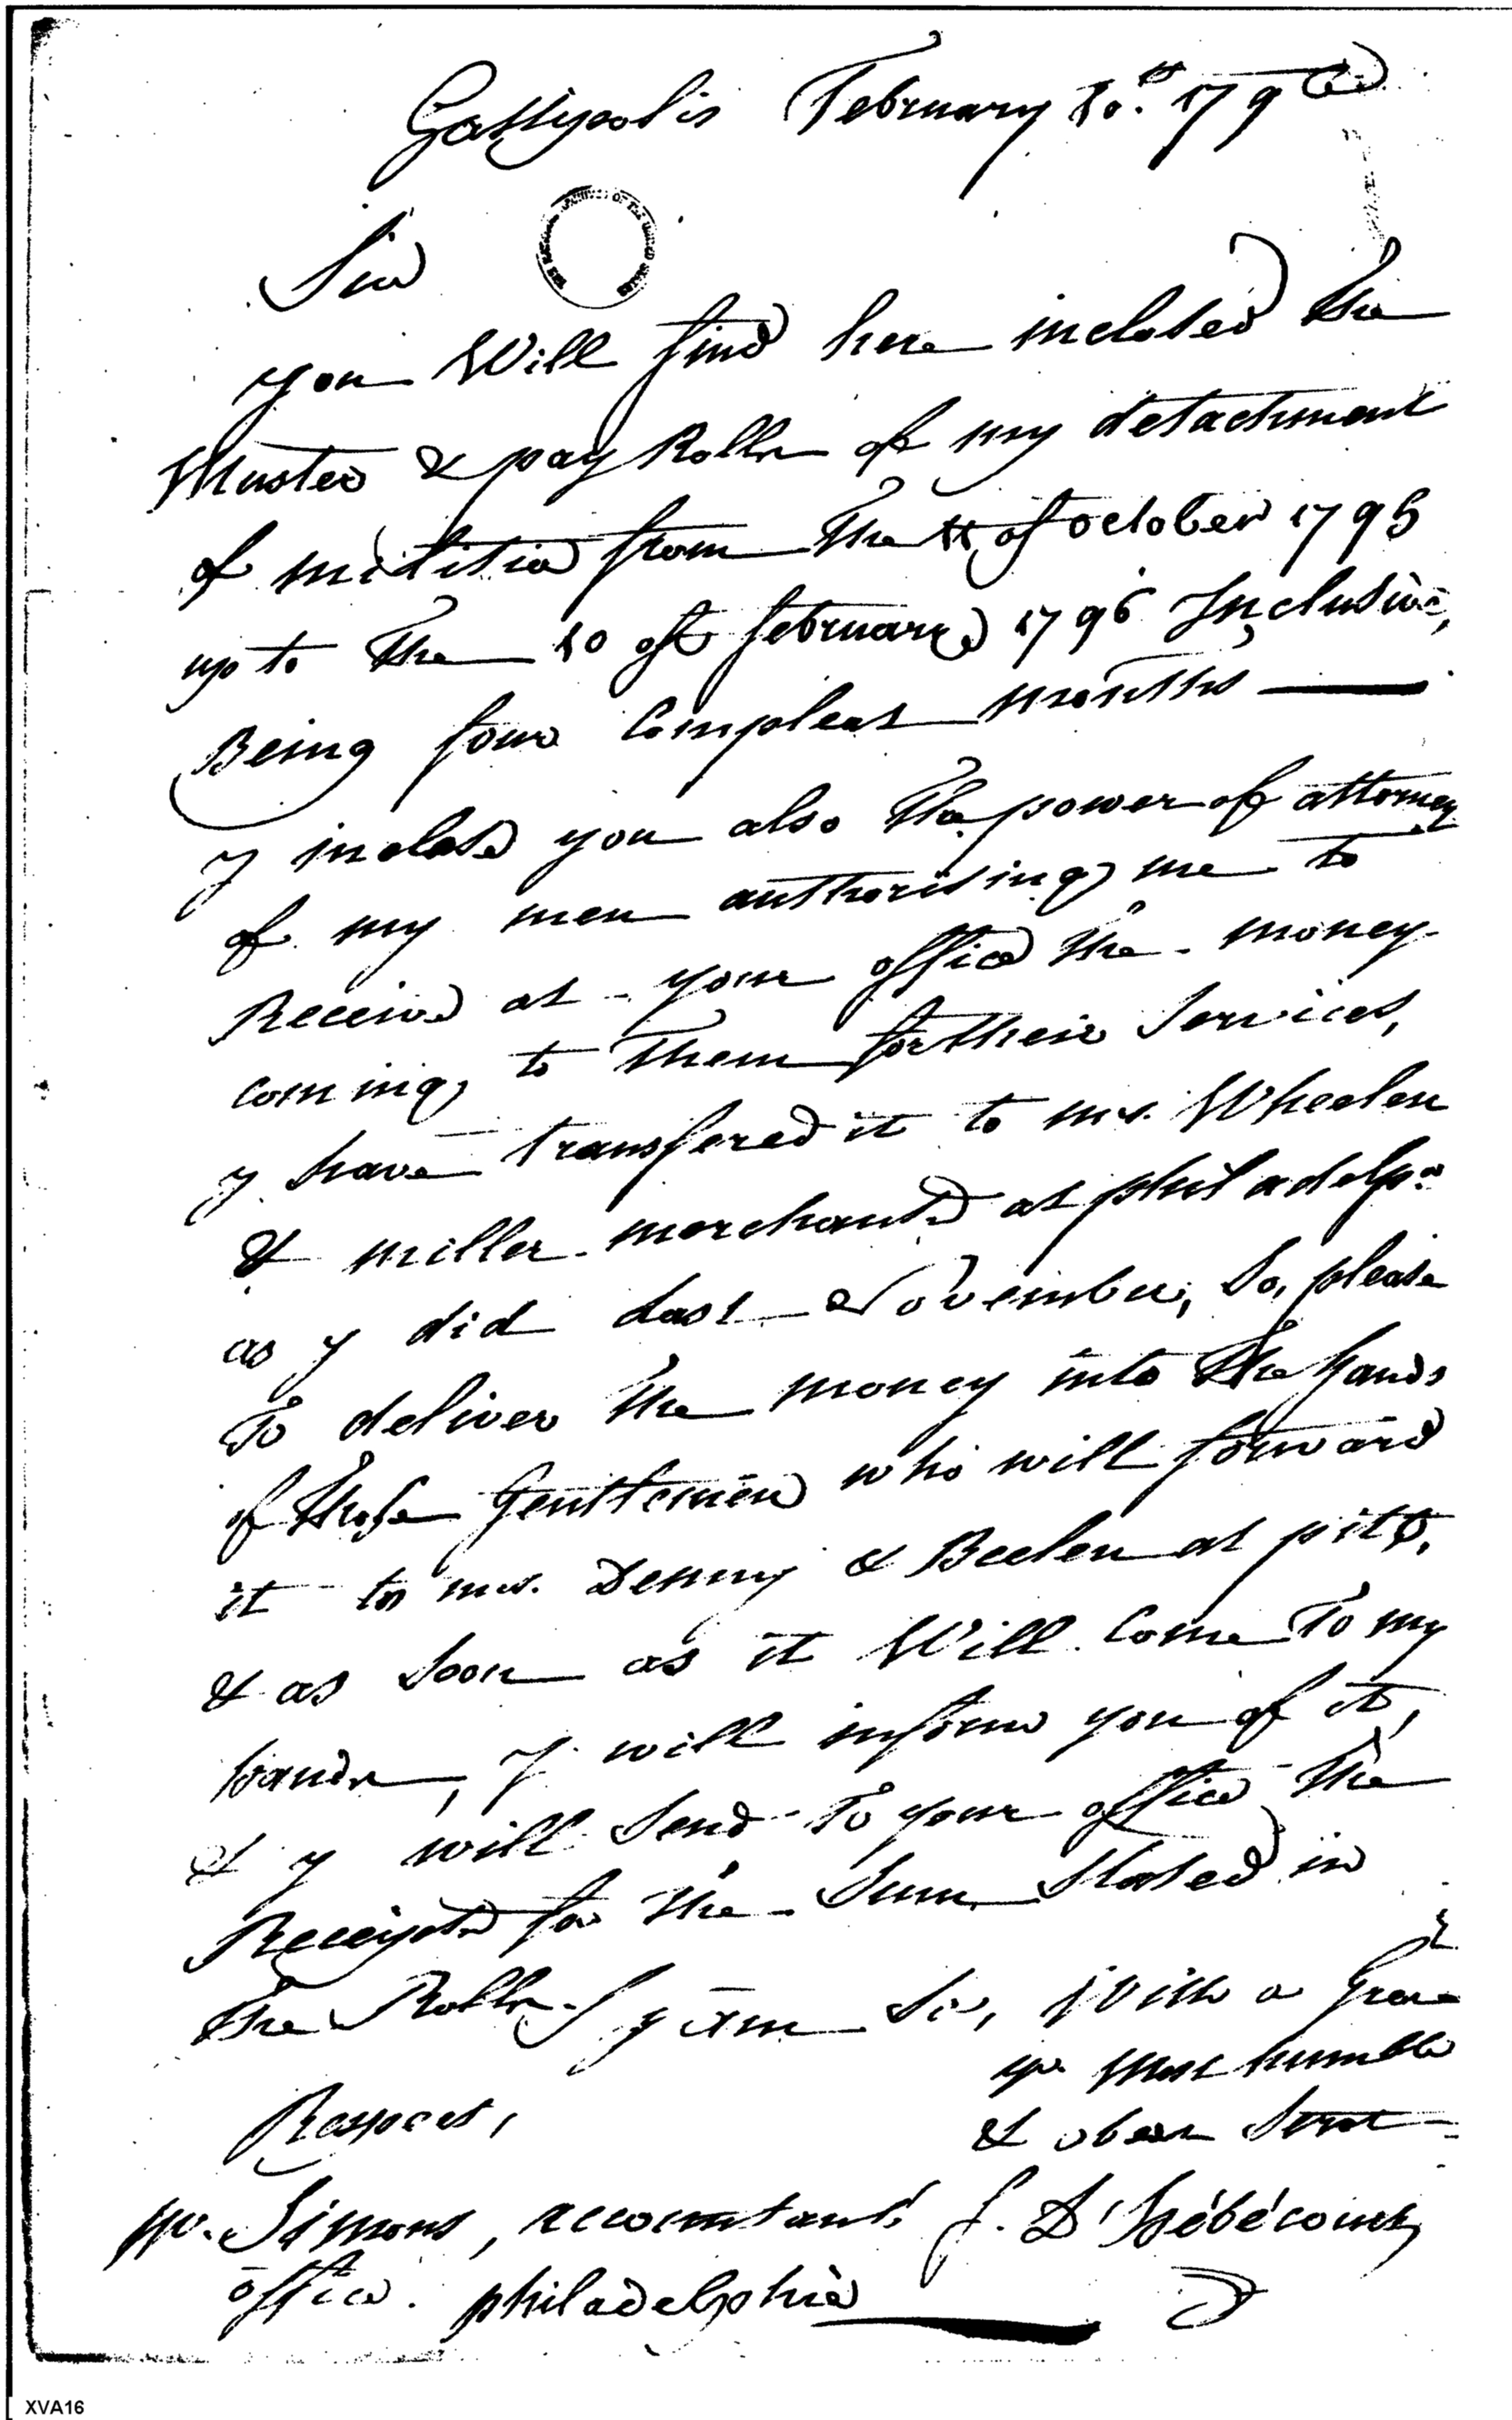 Gallipolis February 10th 1796
Sir
you Will find here inclosed the
Muster & pay Rolls of my detachment
of militia from the 11 of october 1795
up to the 10 of february 1796 Inclusive,
Being four Compleat months
y inclose you also the power of attorney
of my men authorising me to
Receive at your office the money
coming to them for their Services,
y have transfered it to mrs. Wheelen
& miller merchants at philadelpa
as y did last November, So, please
To deliver the money into the hands
of those gentlemen who will forward
it to mrs. Denny & Beelen at pitt,
& as soon as it Will Come To my
hands, y will inform you of it,
& y will Send To your office the
Receipts for the Sum Stated in
the Rolls. y am Sir, With a Great
Respect,
yr. Most humble
& obedt Servt
mr. Simons, accountant's
office. philadelphia
f. D'hébécourt
XVA16